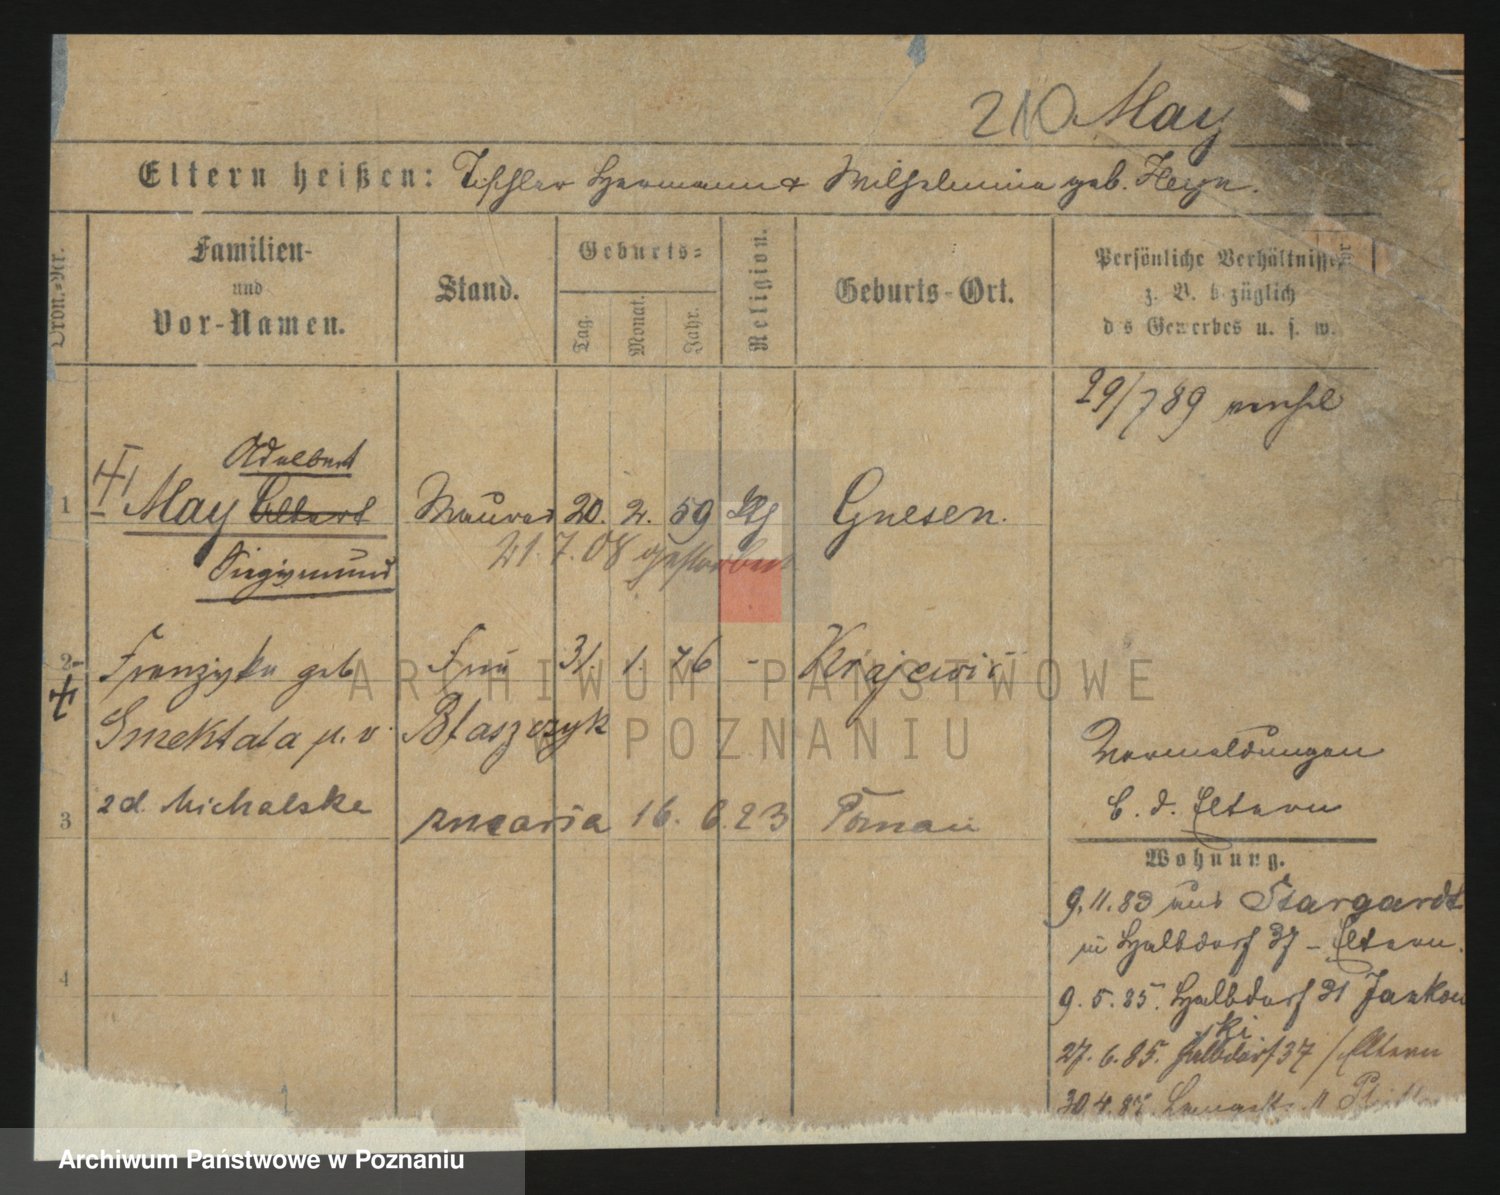 210 May
Eltern heißen: Tischler Hermann & Wilhelmine geb. Heyn.
Ordn.-Nr.
Familien-
und
Vor-Namen.
Stand.
Geburts-
Tag.
Monat.
Jahr.
Religion.
Geburts-Ort.
Persönliche Verhältnisse
z. B. bezüglich
des Gewerbes u. s. w.
29/7 89
Adalbert
1 May Albert Maurer 20. 2. 59 Gnesen.
21.7.08 gestorben
Siegismund
2 Franziska geb Frau 31. 1. 76 -
Smektala Błaszczyk
Vormeldungen
b. d. Eltern
3 2d Michalska 16. 6. 23
Wohnung.
9.11.83 aus Stargardt
in Halbdorf 37 - Eltern.
9.5.85. Halbdorf 31 Jankow
ski
27.6.85. Halbdorf 37 / Eltern
4
30.4.87.
ARCHIWUM PAŃSTWOWE
W POZNANIU
Archiwum Państwowe w Poznaniu